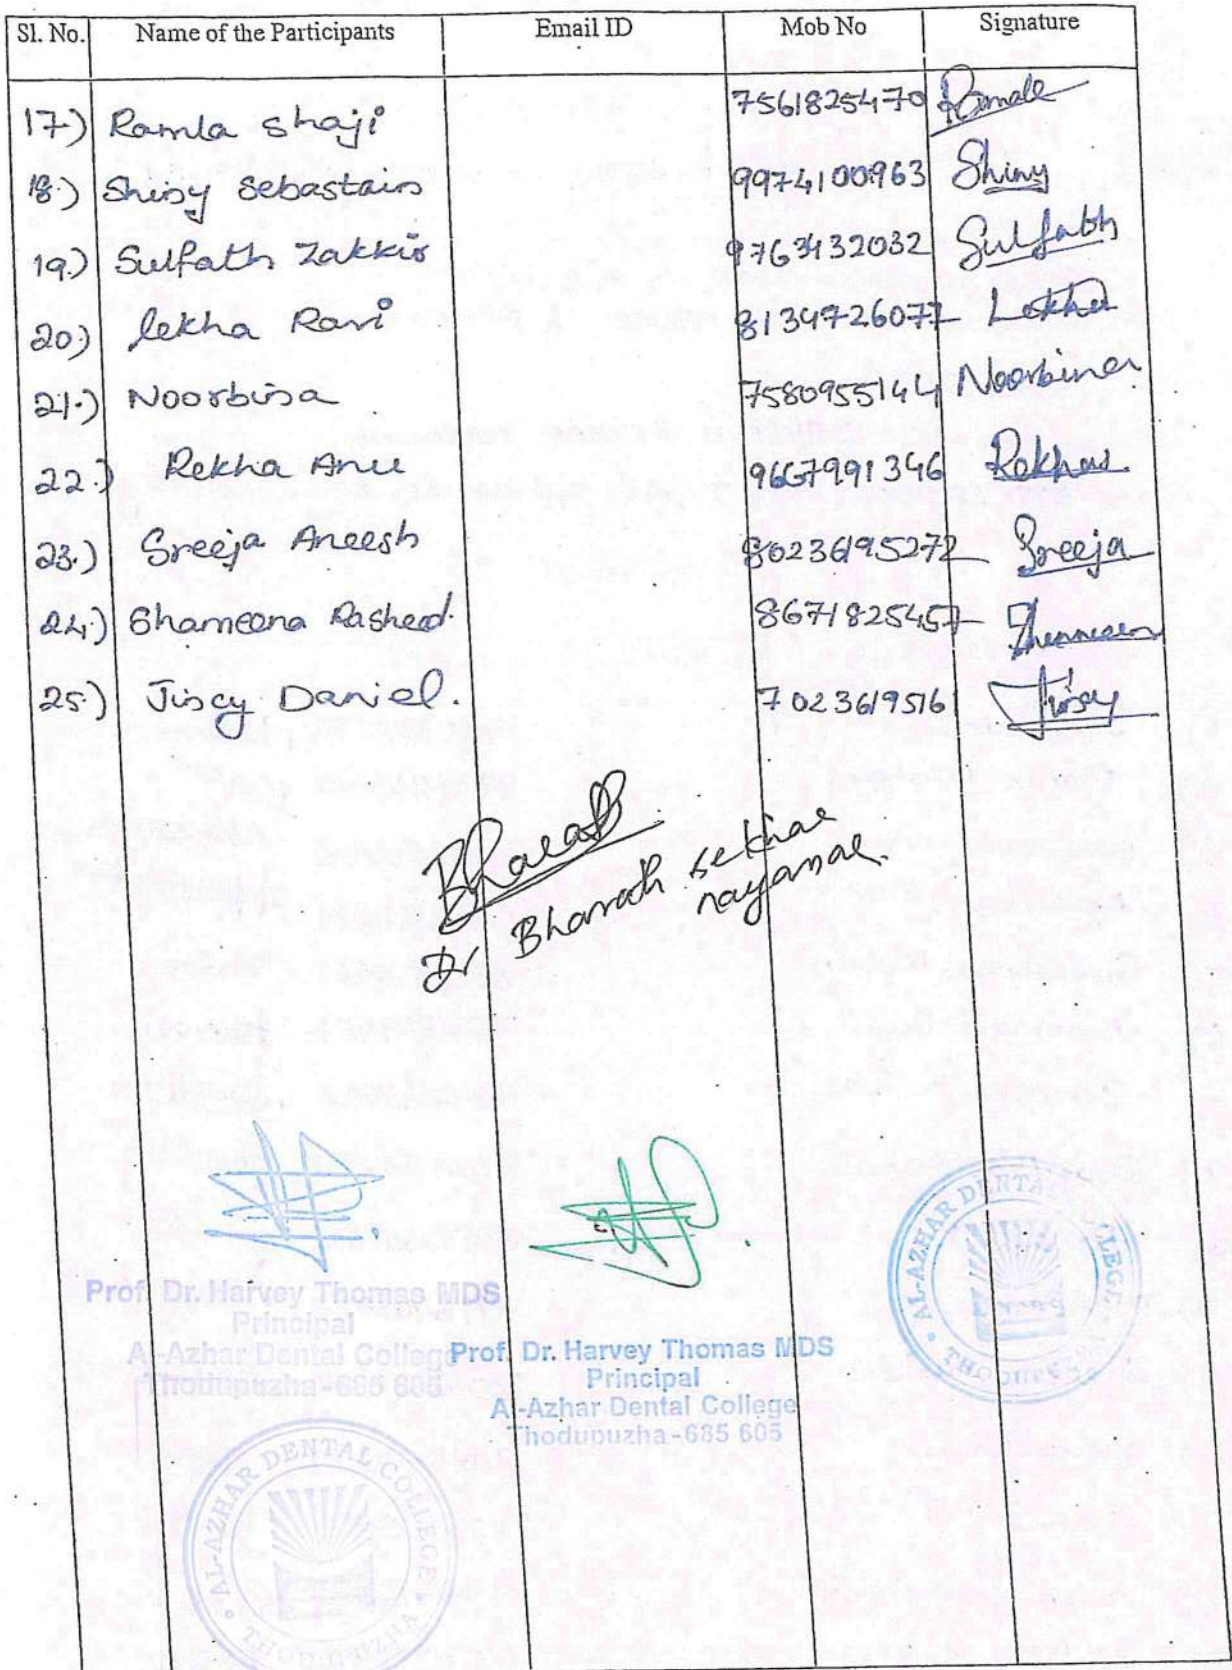 Sl. No. Name of the Participants Email ID Mob No Signature
17.) Ramla shaji 7561825470 Ramla
18.) Shiny Sebastain 9974100963 Shiny
19.) Sulfath Zakkir 9763432032 Sulfath
20.) lekha Ravi 8134726077 Lekha
21.) Noorbina 7580955144 Noorbina
22.) Rekha Anu 9667991346 Rekha
23.) Sreeja Aneesh 8023695272 Sreeja
24.) Shameena Rasheed. 8671825457
25.) Jincy Daniel. 7023619516 Jincy
Bharath
Dr Bharath sekhar
nayanar.
Prof. Dr. Harvey Thomas MDS
Principal
Al-Azhar Dental College
Thodupuzha-685 605
Prof. Dr. Harvey Thomas MDS
Principal
Al-Azhar Dental College
Thodupuzha-685 605
AL-AZHAR DENTAL COLLEGE
THODUPUZHA
AL-AZHAR DENTAL COLLEGE
THODUPUZHA